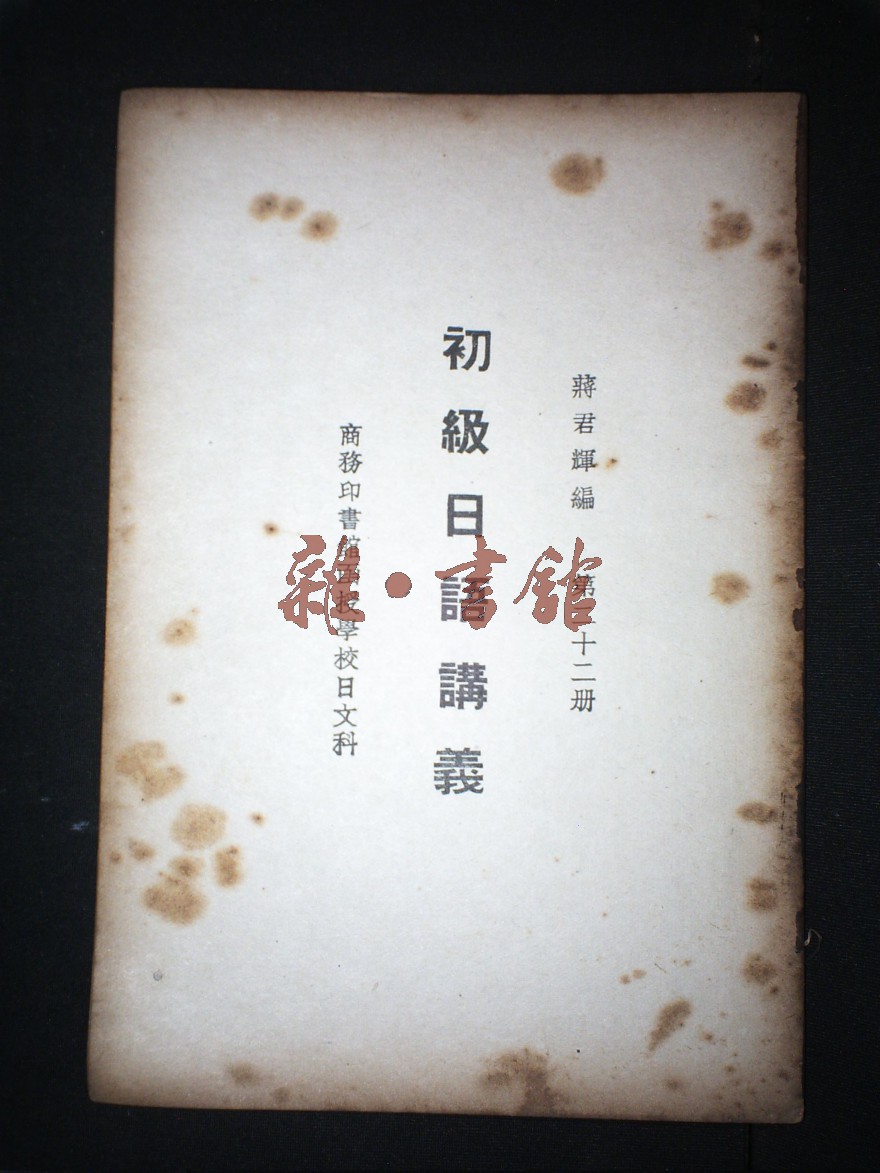 蔣君輝編 第十二册
初級日語講義
商務印書館函授學校日文科
雜·書館